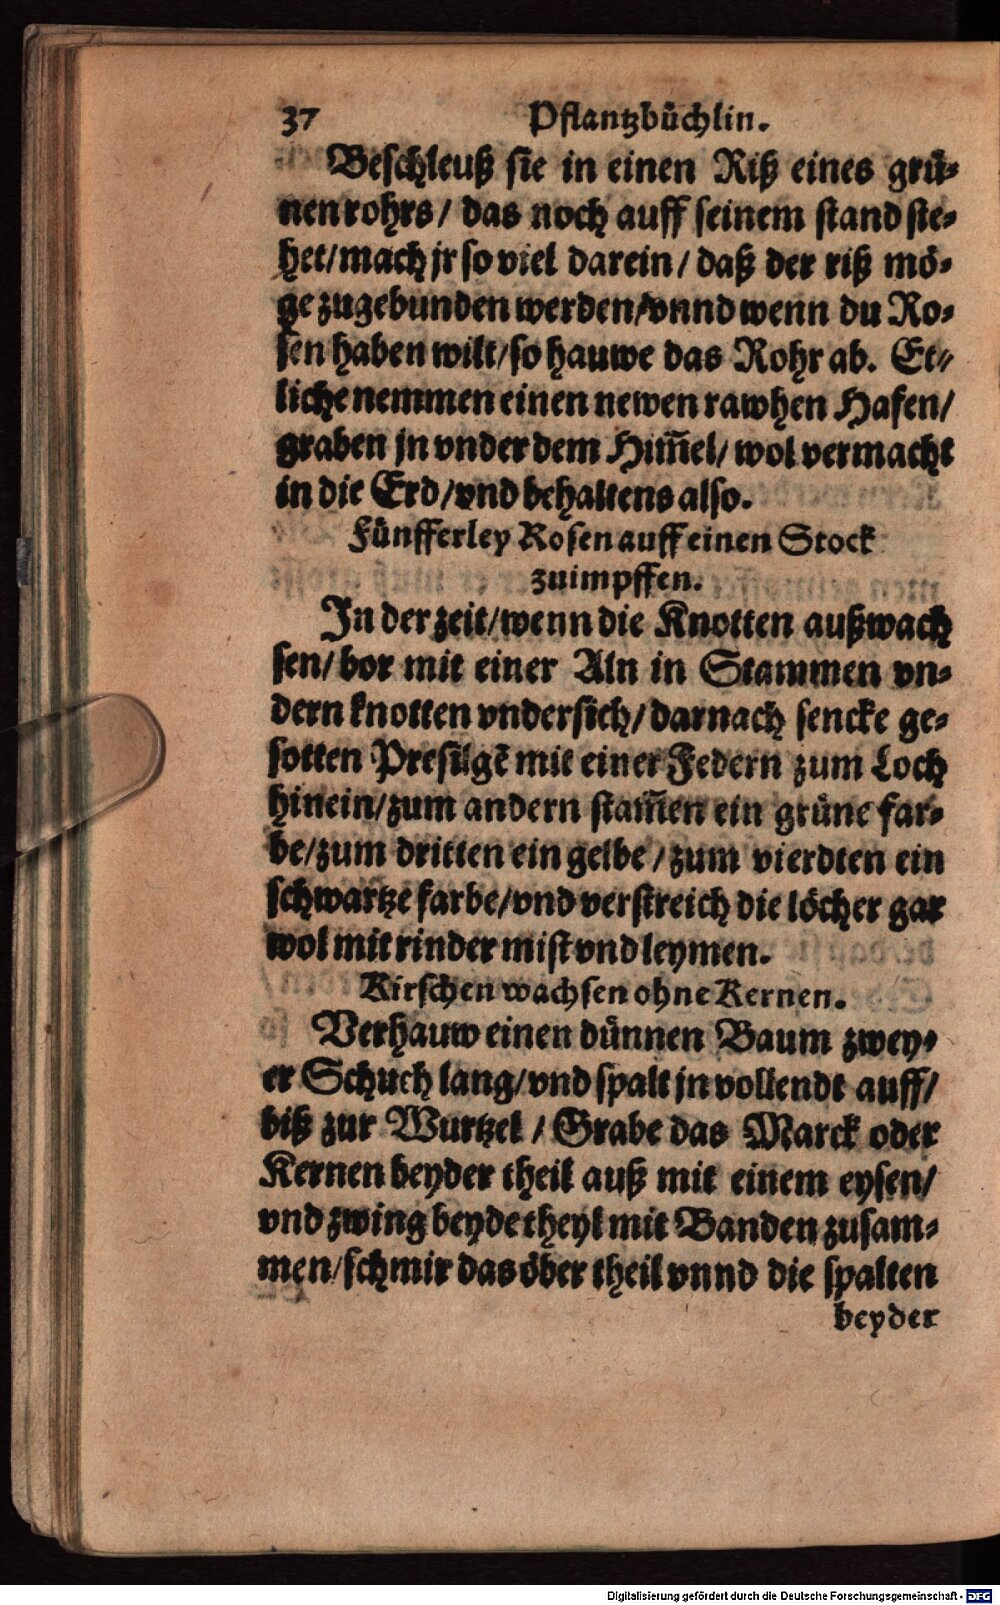 37 Pflantzbüchlin.
Beschleuß sie in einen Riß eines grü-
nen rohrs/ das noch auff seinem stand ste-
het/ mach jr so viel darein/ daß der riß mö-
ge zugebunden werden/ vnnd wenn du Ro-
sen haben wilt/ so hauwe das Rohr ab. Et-
liche nemmen einen newen rawhen Hafen/
graben jn vnder dem Him̃el/ wol vermacht
in die Erd/ vnd behaltens also.
Fünfferley Rosen auff einen Stock
zuimpffen.
In der zeit/ wenn die Knotten außwach
sen/ bor mit einer Aln in Stammen vn-
dern knotten vndersich/ darnach sencke ge-
sotten Presilgẽ mit einer Federn zum Loch
hinein/ zum andern stam̃en ein grüne far-
be/ zum dritten ein gelbe/ zum vierdten ein
schwartze farbe/ vnd verstreich die löcher gar
wol mit rinder mist vnd leymen.
Kirschen wachsen ohne Kernen.
Verhauw einen dünnen Baum zwey-
er Schuch lang/ vnd spalt jn vollendt auff/
biß zur Wurtzel/ Grabe das Marck oder
Kernen beyder theil auß mit einem eysen/
vnd zwing beyde theyl mit Banden zusam-
men/ schmir das öber theil vnnd die spalten
beyder
Digitalisierung gefördert durch die Deutsche Forschungsgemeinschaft - DFG